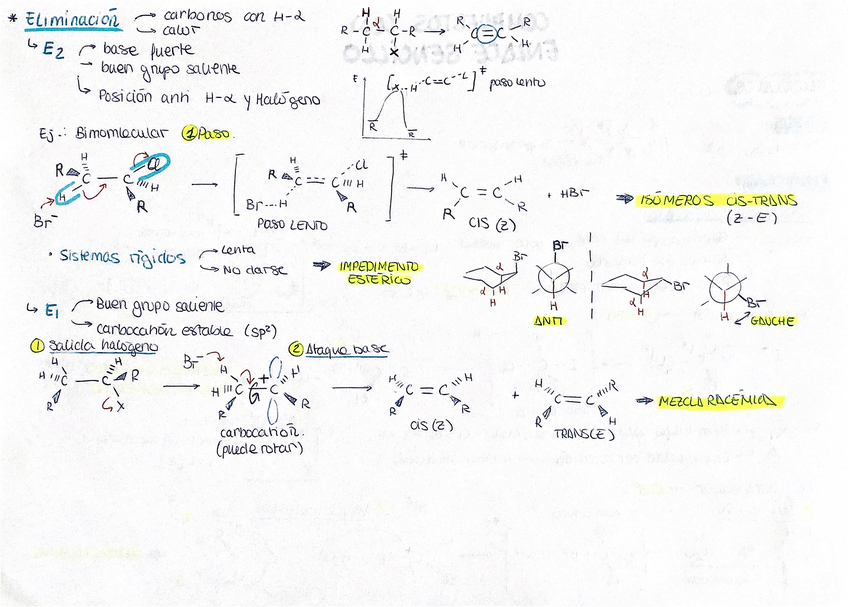 * Eliminación → carbonos con H-α
→ calor
↳ E2 → base fuerte
→ buen grupo saliente
→ Posición anti H-α y Halógeno
H H
R - C α - C - R → R C = C R
H X H H
E
[X...H C=C-L]‡ paso lento
R R
Ej.: Bimomlecular ① Paso.
R H C - C Cl H R
H
Br⁻
→ [ R H C = C Cl H R Br---H ]‡ → H C = C H + HBr ⇒ ISÓMEROS CIS-TRANS
PASO LENTO
R R
CIS (Z)
(Z-E)
• Sistemas rígidos → lenta
→ No darse ⇒ IMPEDIMENTO
ESTÉRICO
Br α α H H
Br H
ANTI
α Br α H H
Br H
GAUCHE
↳ E1 → Buen grupo saliente
→ carbocatión estable (sp²)
① Salida halógeno
② Ataque base
H H C - C H R R X
→ Br⁻ H H C + C H R R
carbocatión.
(puede rotar)
→ H C = C H R R
CIS (Z)
+ H C = C R R H
TRANS(E)
⇒ MEZCLA RACÉMICA